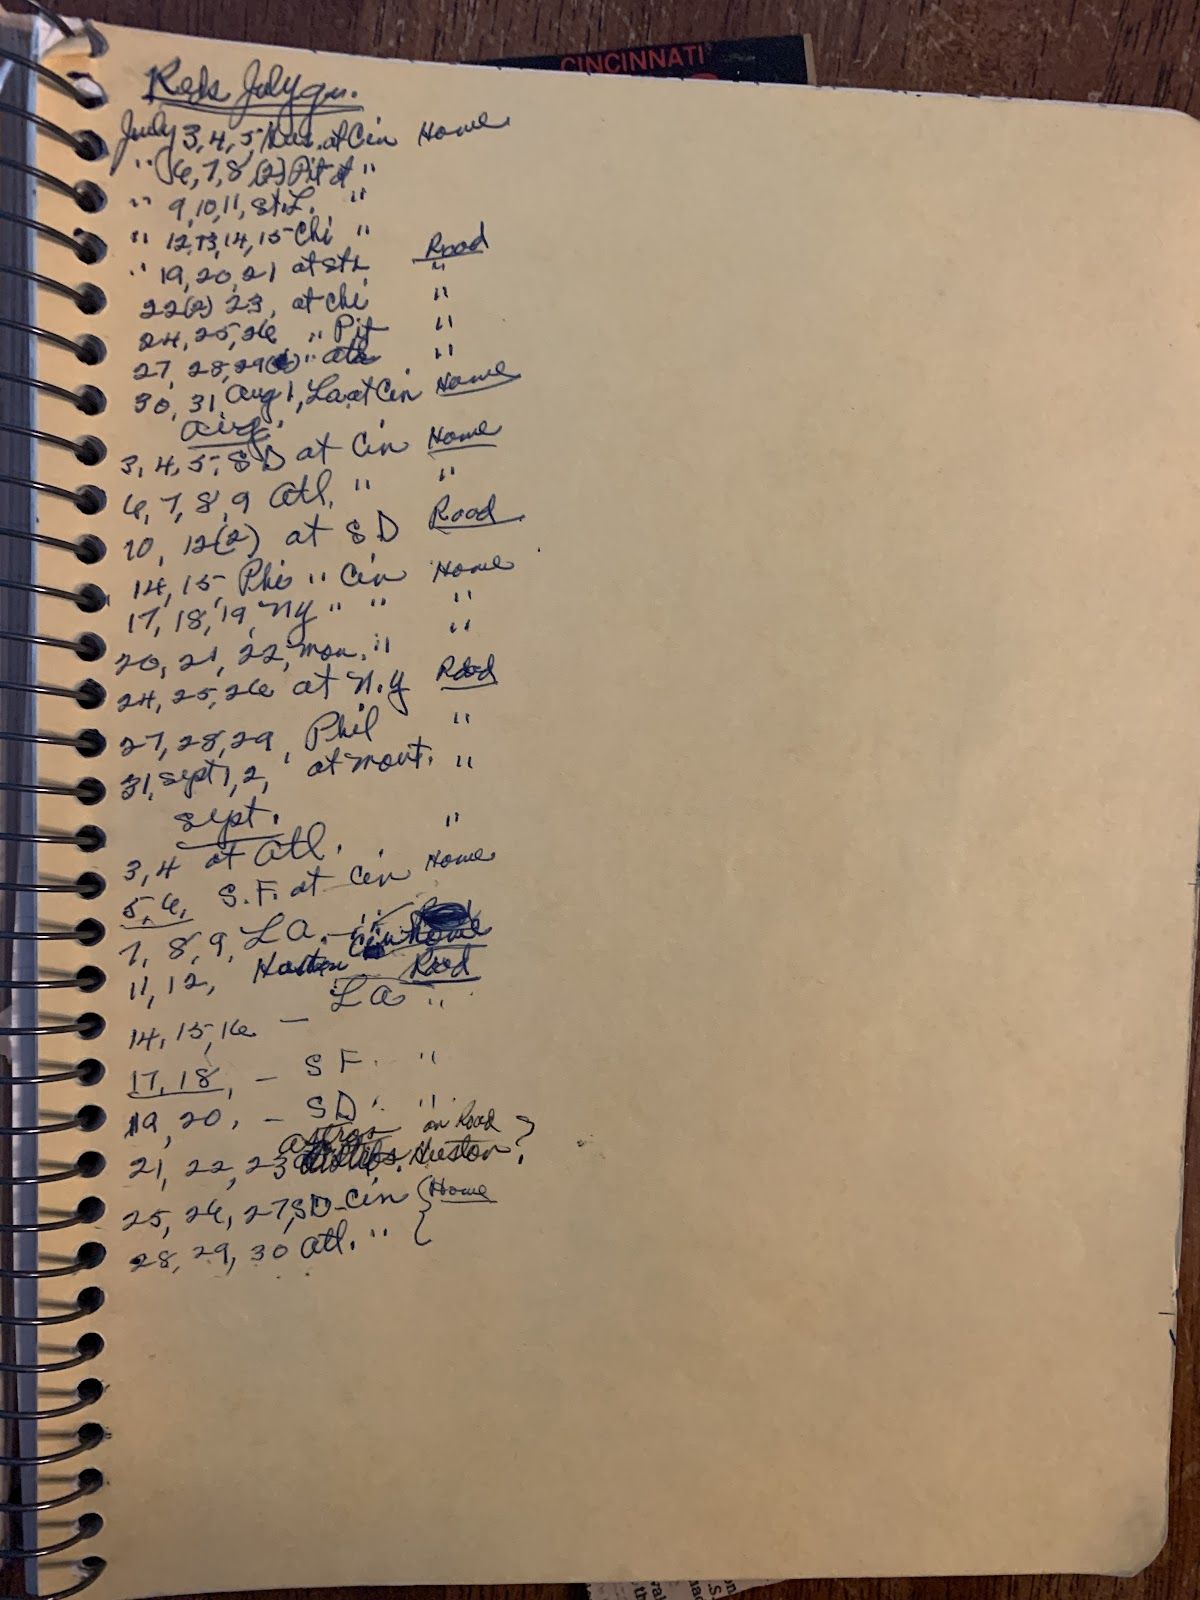 CINCINNATI
Reds July
July 3, 4, 5, at Cin Home
" 6, 7, 8, (2) Pit at "
" 9, 10, 11, St. L. "
" 12, 13, 14, 15 Chi "
" 19, 20, 21 at St L Road
22(2) 23, at Chi "
24, 25, 26 " Pit "
27, 28, 29 " Atl "
30, 31, Aug 1, La. at Cin Home
Aug.
3, 4, 5, SD at Cin Home
6, 7, 8, 9 Atl. " "
10, 12(2) at S D Road
14, 15, Phi " Cin Home
17, 18, 19, Ny " " "
20, 21, 22, Mon. " "
24, 25, 26 at N.y Road
27, 28, 29, Phil "
31, Sept 1, 2, at Mont. "
Sept.
3, 4 at Atl. "
5, 6, S.F. at Cin Home
7, 8, 9, L A. - "
11, 12, Cin Home
Road
14, 15, 16 - L A "
17, 18, - S F. "
19, 20, - S D. "
Astros on Road
21, 22, 23 Huston?
25, 26, 27, SD - Cin Home
28, 29, 30 Atl. "